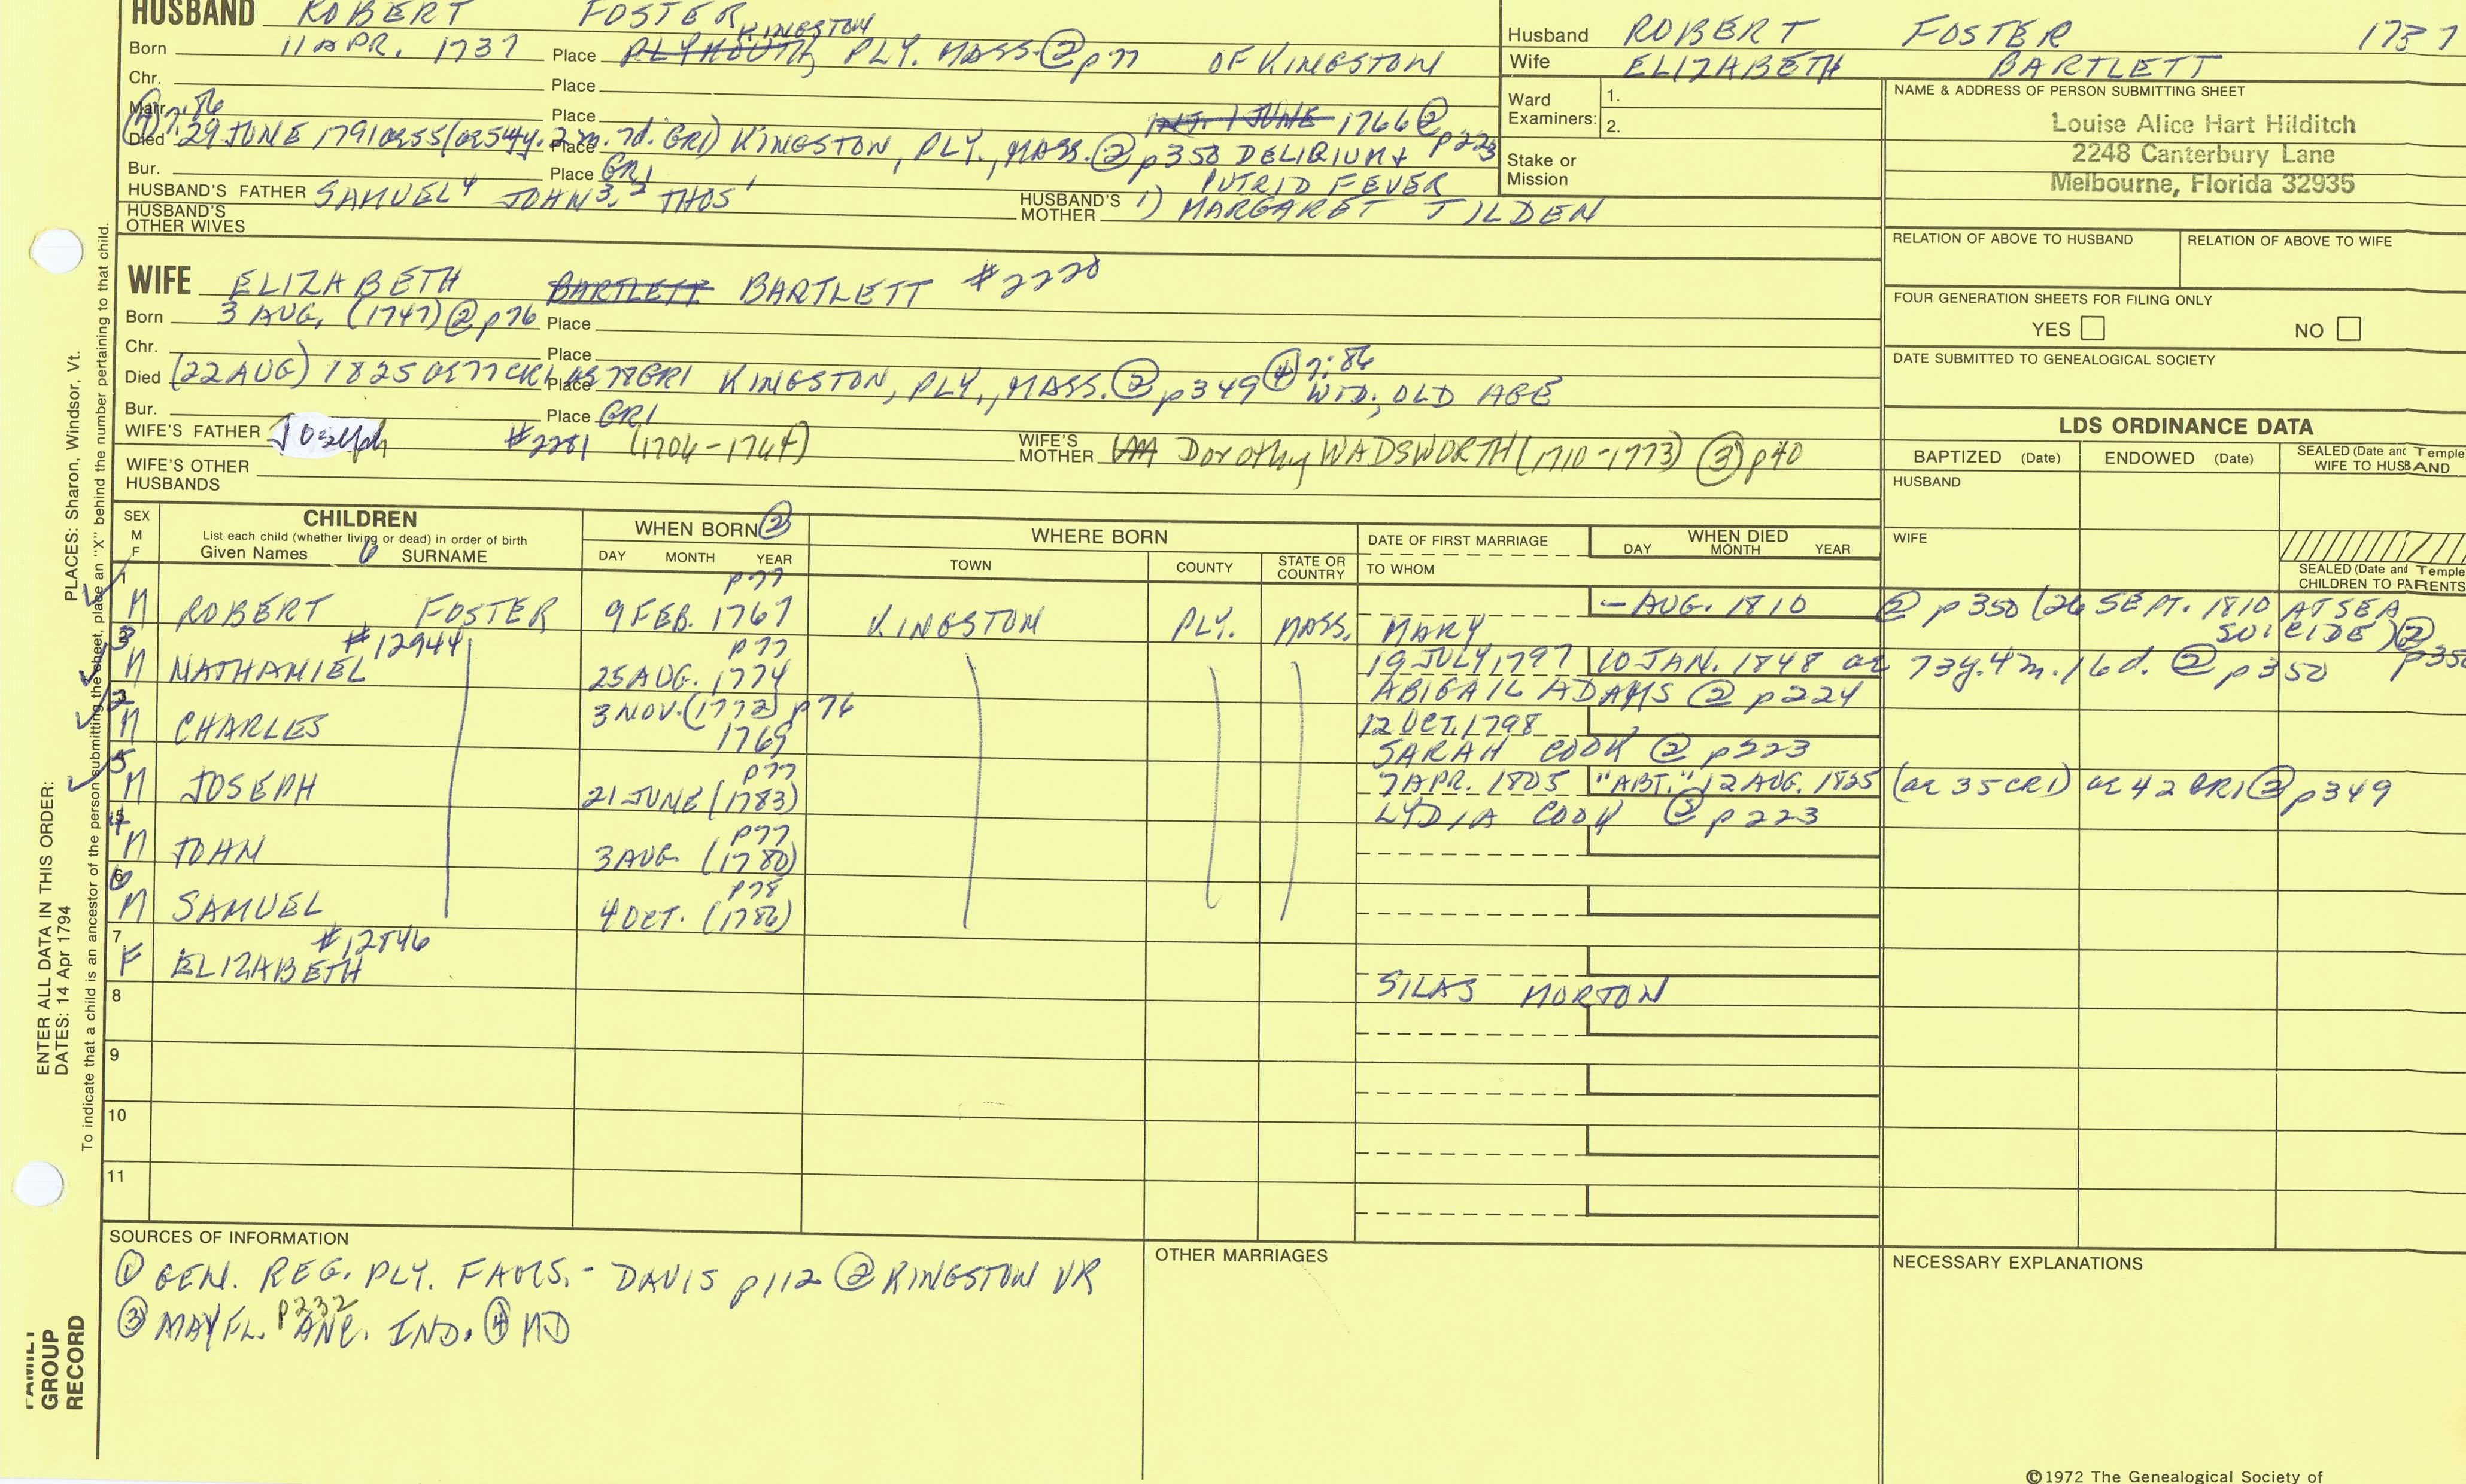 HUSBAND ROBERT FOSTER
KINGSTON
Born 11 APR. 1737 Place PLYMOUTH, PLY. MASS. ② p77 OF KINGSTON
Chr. Place
Marr. Place INT. 1 JUNE 1766 ② p223
④ 7:86
Died 29 JUNE 1791 ae 55 (ae 54y. 2m. 7d. GR1) Place KINGSTON, PLY., MASS. ② p350 DELIRIUM &
PUTRID FEVER
Bur. Place GR1
HUSBAND'S FATHER SAMUEL4 JOHN3,2 THOS1 HUSBAND'S MOTHER 1) MARGARET TILDEN
HUSBAND'S OTHER WIVES
Husband ROBERT FOSTER 1737
Wife ELIZABETH BARTLETT
Ward Examiners: 1.
2.
Stake or Mission
NAME & ADDRESS OF PERSON SUBMITTING SHEET
Louise Alice Hart Hilditch
2248 Canterbury Lane
Melbourne, Florida 32935
RELATION OF ABOVE TO HUSBAND RELATION OF ABOVE TO WIFE
FOUR GENERATION SHEETS FOR FILING ONLY
YES NO
DATE SUBMITTED TO GENEALOGICAL SOCIETY
WIFE ELIZABETH BARTLETT BARTLETT #2220
Born 3 AUG. (1747) ② p76 Place
Chr. Place
Died (22 AUG) 1825 ae 77 CR1, ae 78 GR1 Place KINGSTON, PLY., MASS. ② p349 ④ 7:86
WID., OLD AGE
Bur. Place GR1
WIFE'S FATHER Joseph #2281 (1704-1764) WIFE'S MOTHER Dorothy WADSWORTH (1710-1773) ③ p40
WIFE'S OTHER HUSBANDS
LDS ORDINANCE DATA
BAPTIZED (Date) ENDOWED (Date) SEALED (Date and Temple WIFE TO HUSBAND
HUSBAND
WIFE
SEALED (Date and Temple
CHILDREN TO PARENTS
SEX M F
CHILDREN
List each child (whether living or dead) in order of birth
Given Names 6 SURNAME
WHEN BORN ②
DAY MONTH YEAR
WHERE BORN
TOWN COUNTY STATE OR COUNTRY
DATE OF FIRST MARRIAGE
TO WHOM
WHEN DIED
DAY MONTH YEAR
1 M ROBERT FOSTER 9 FEB. 1767 p77 KINGSTON PLY. MASS. MARY – AUG. 1810 ② p350 (26 SEPT. 1810 AT SEA
SUICIDE) ② p350
3 M NATHANIEL #12944 25 AUG. 1774 p77 19 JULY, 1797 10 JAN. 1848 ae 73y. 4m. 16d. ② p350
ABIGAIL ADAMS ② p224
2 M CHARLES 3 NOV. (1772) p76 1769 12 OCT. 1798
SARAH COOK ② p223
5 M JOSEPH 21 JUNE (1783) p77 7 APR. 1805 "ABT." 12 AUG. 1825 (ae 35 CR1) ae 42 GR1 ② p349
LYDIA COOK ② p223
4 M JOHN 3 AUG. (1780) p77
6 M SAMUEL 4 OCT. (1786) p78
7 F ELIZABETH
SILAS MORTON
8
9
10
11
SOURCES OF INFORMATION
① GEN. REG. PLY. FAMS. - DAVIS p112 ② KINGSTON VR
p232
③ MAYFL. ANC. IND. ④ MD
OTHER MARRIAGES
NECESSARY EXPLANATIONS
©1972 The Genealogical Society of
PLACES: Sharon, Windsor, Vt.
ENTER ALL DATA IN THIS ORDER:
DATES: 14 Apr 1794
To indicate that a child is an ancestor of the person submitting the sheet, place an "X" behind the number pertaining to that child.
FAMILY GROUP RECORD